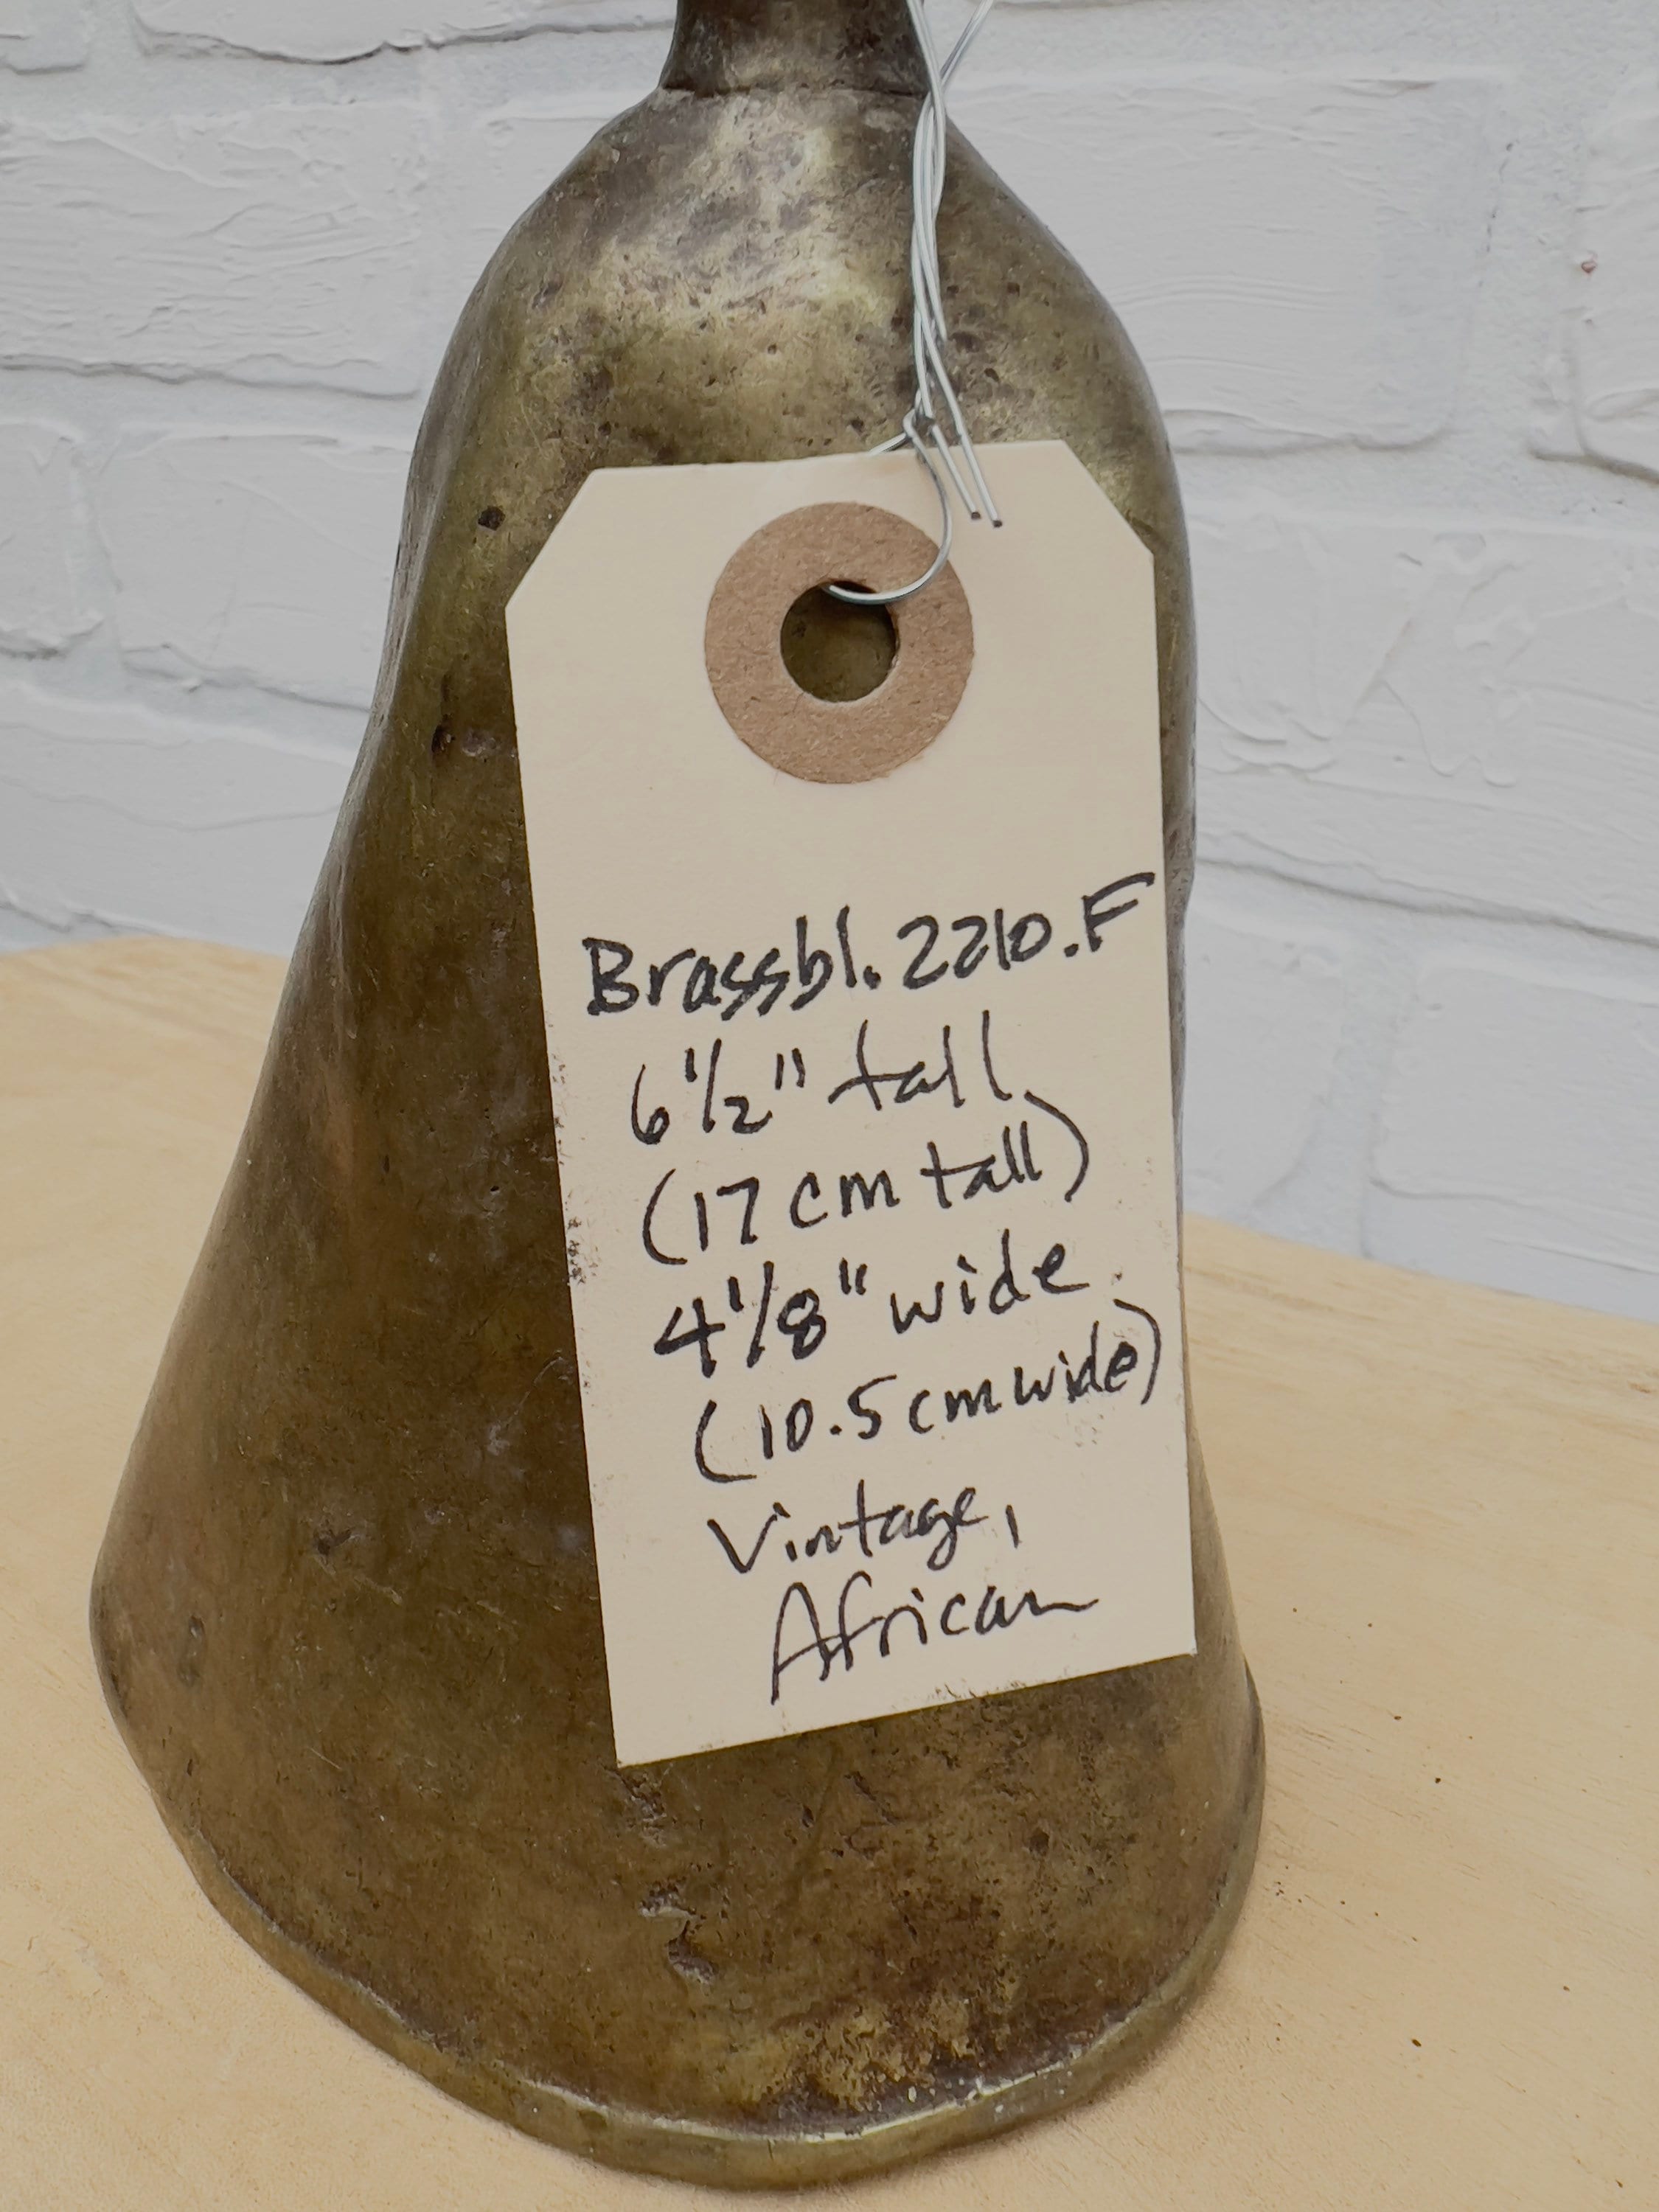 Brassbl. 2210.F
6 1/2" tall
(17 cm tall)
4 1/8" wide
(10.5 cm wide)
Vintage,
African